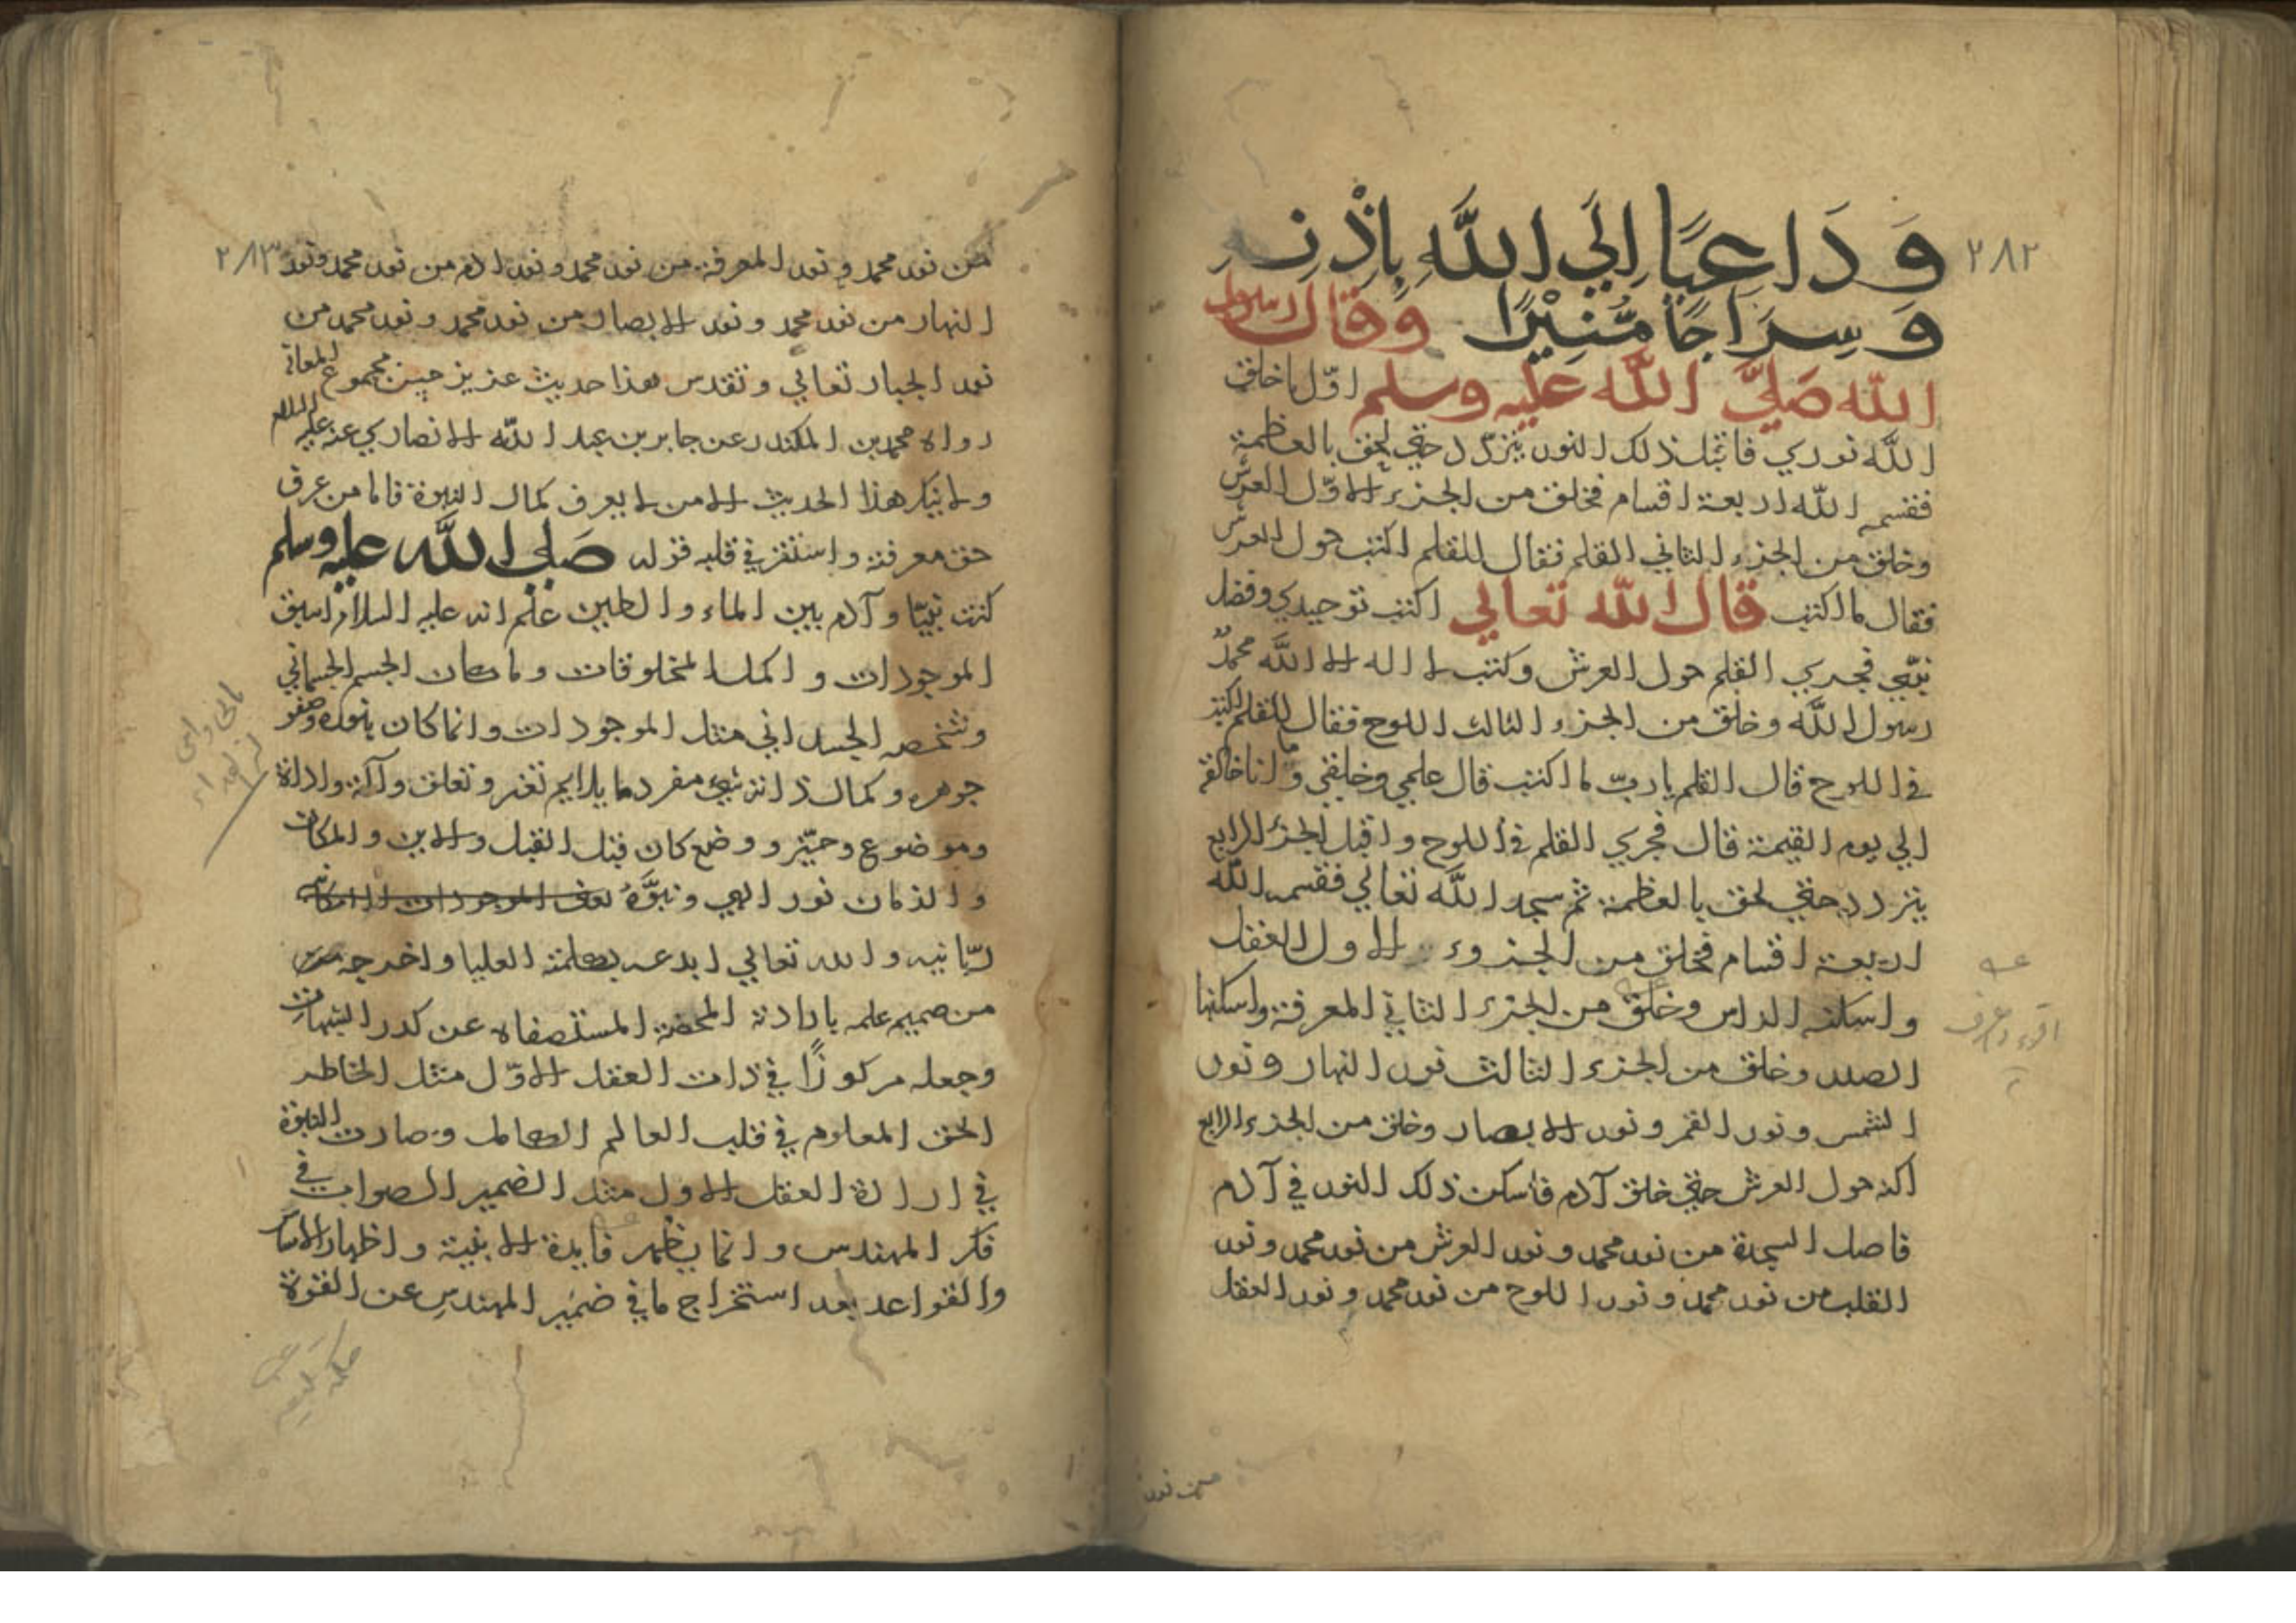 ٢٨٢
وَدَاعِيًا اِلَي اللَّهِ بِاِذْنِهِ
وَسِرَاجًا مُّنِيْرًا وَقَالَ رسول
اللّه صَلَيَّ اللَّه عليه وسلم اوّل ما خلق
اللَّه نوري فاقبل ذلك النور يتردّد حتي لحق بالعظمة
فقسمه اللّه اربعة اقسام فخلق من الجزء الاوّل العرش
وخلق من الجزء الثاني القلم فقال للقلم اكتب حول العرش
فقال ما اكتب قال اللّه تعالي اكتب توحيدي وفضل
نبيّي فجري القلم حول العرش وكتب لا اله الا اللَّه محمدٌ
رسول اللَّه وخلق من الجزء الثالث اللوح فقال للقلم اكتب
في اللوح قال القلم يا ربّ ما اكتب قال علمي وخلقي وما انا خالقه
الي يوم القيمة قال فجري القلم في اللوح واقبل الجزء الرابع
يتردد حتي لحق بالعظمة ثم سجد اللَّه تعالي فقسمه اللَّه
اربعة اقسام فخلق من الجزوء الاول العقل
واسكنه الراس وخلق من الجزء الثاني المعرفة واسكنها
الصدر وخلق من الجزء الثالث نور النهار ونور
الشمس ونور القمر ونور الابصار وخلق من الجزء الرابع
اكنه حول العرش حتي خلق آدم فاسكن ذلك النور في آدم
فاصل السجدة من نور محمد ونور العرش من نور محمد ونور
القلب من نور محمد ونور اللوح من نور محمد ونور العقل
من نور
٢٨٣
من نور محمد ونور المعرفة من نور محمد ونور ادم من نور محمد ونور
النهار من نور محمد ونور الابصار من نور محمد ونور محمد من
نور الجبار تعالي وتقدس هذا حديث عزيز حسن مجموع المعاني
رواه محمد بن المكندر عن جابر بن عبد اللّه الانصاري عنه عليه السلام
ولا ينكر هذا الحديث الا من لا يعرف كمال النبوة فاما من عرف
حق معرفته واستقر في قلبه قوله صَلي اللَّه عليه وسلم
كنت نبيّا وآدم بين الماء والطين علم انه عليه السلام اسبق
الموجودات واكمل المخلوقات وما كان الجسم الجسماني
وشخصه الجسداني مثل الموجودات وانما كان بنوره وصفو
جوهره وكمال ذاته شيئ مفرد ما يلايم تغير وتعلق وآلة واداة
وموضوع وحيّز ووضع كان قبل القبل والاين والمكان
والزمان نور الهي ونبوَّة
ربّانيه والله تعالي ابدعه بكلمته العليا واخرجه
من صميم علمه بارادته المحضة المستصفاه عن كدر الشبهات
وجعله مركوزًا في ذات العقل الاوّل مثل الخاطر
الحق المعلوم في قلب العالم الكامل وصارت النبوة
في ارادة العقل الاول مثل الضمير الصواب في
فكر المهندس وانما يظهر فايدة الابنية واظهار الاساس
والقواعد بعد استخراج ما في ضمير المهندس عن القوة